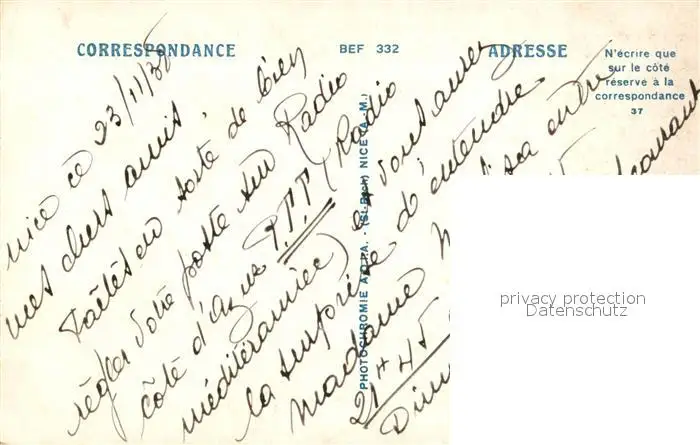 CORRESPONDANCE
BEF 332
ADRESSE
N'écrire que
sur le côté
réservé à la
correspondance
37
nice ce 23/11/38
mes chers amis,
Faites en sorte de bien
régler votre poste sur Radio
côte d'Azur P.T.T (Radio
méditerranée) et vous aurez
la surprise d'entendre
madame
21H45
PHOTOCHROMIE A.D.I.A. - (St-Roch) NICE (A.-M.)
privacy protection
Datenschutz